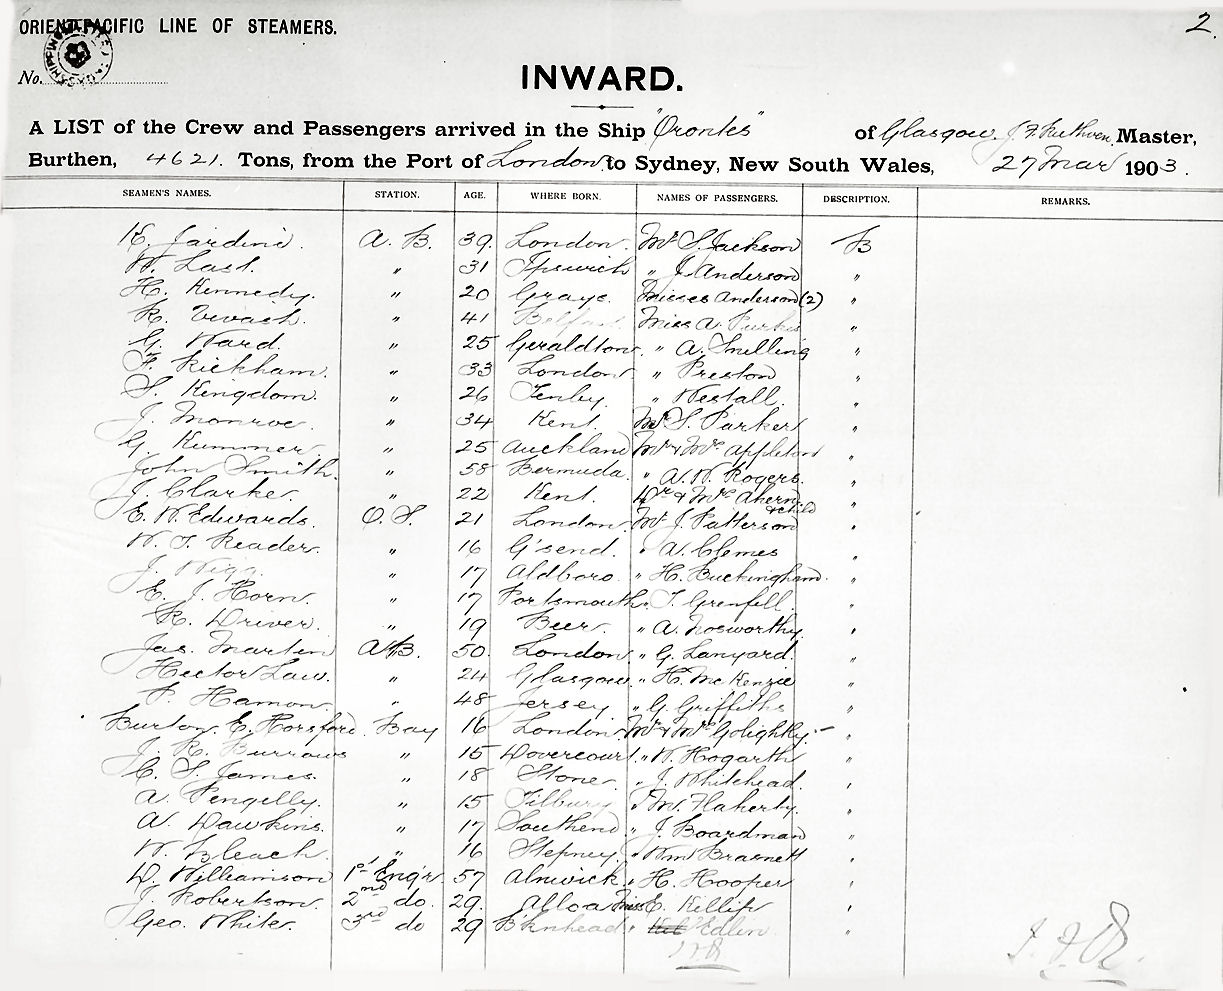 ORIENT-PACIFIC LINE OF STEAMERS.
2.
No.
INWARD.
A LIST of the Crew and Passengers arrived in the Ship "Orontes" of Glasgow, J. F. Ruthven, Master,
Burthen, 4621. Tons, from the Port of London to Sydney, New South Wales, 27 Mar 1903.
SEAMEN'S NAMES. STATION. AGE. WHERE BORN. NAMES OF PASSENGERS. DESCRIPTION. REMARKS.
E. Jardine. A. B. 39. London. Mr S. Jackson B
W. Last. " 31 Ipswich " J. Anderson "
H. Kennedy. " 20 Grays. Misses Anderson (2) "
R. " 41 Belfast. Miss A. "
G. Ward. " 25 Geraldton. " A. Snelling "
F. Rickham. " 33 London. " Preston "
S. Kingdom. " 26 Tenby. " Westall. "
J. Monroe. " 34 Kent. S. Parker "
G. Kummer. " 25 Auckland Mr & Mrs Appleton "
John Smith. " 58 Bermuda. " A. W. Rogers. "
J. Clarke. " 22 Kent. Dr & Mrs Ahern & child "
E. W. Edwards. O. S. 21 London. Mr J. Patterson "
W. T. Reader. " 16 G'send. " A. Clemes "
J. Wigg. " 17 Aldboro. " H. Buckingham. "
E. J. Horn. " 17 Portsmouth. " T. Grenfell. "
R. Driver. " 19 Beer. " A. Nosworthy. "
Jas. Martin A.B. 50. London. " G. Lanyard. "
Hector Law. " 24 Glasgow. " H. McKenzie "
P. Hamon. " 48 Jersey " G. Griffiths "
Burton. E. Horsford. Boy 16 London. Mr & Mrs Golightly. "
J. R. Burrows " 15 Dovercourt. " W. Hogarth "
C. S. James. " 18 Stone. " J. Whitehead. "
A. Pengelly. " 15 Tilbury " Flaherty. "
A. Dawkins. " 17 Southend. " J. Boardman "
W. Bleach. " 16 Stepney. " Wm Brasnett "
D. Williamson 1st Engr. 57 Alnwick. " H. Hooper "
J. Robertson. 2nd do. 29. Alloa Miss E. Killip "
Geo. White. 3rd do 29 B'kenhead. " Edlin "
J. F. R.